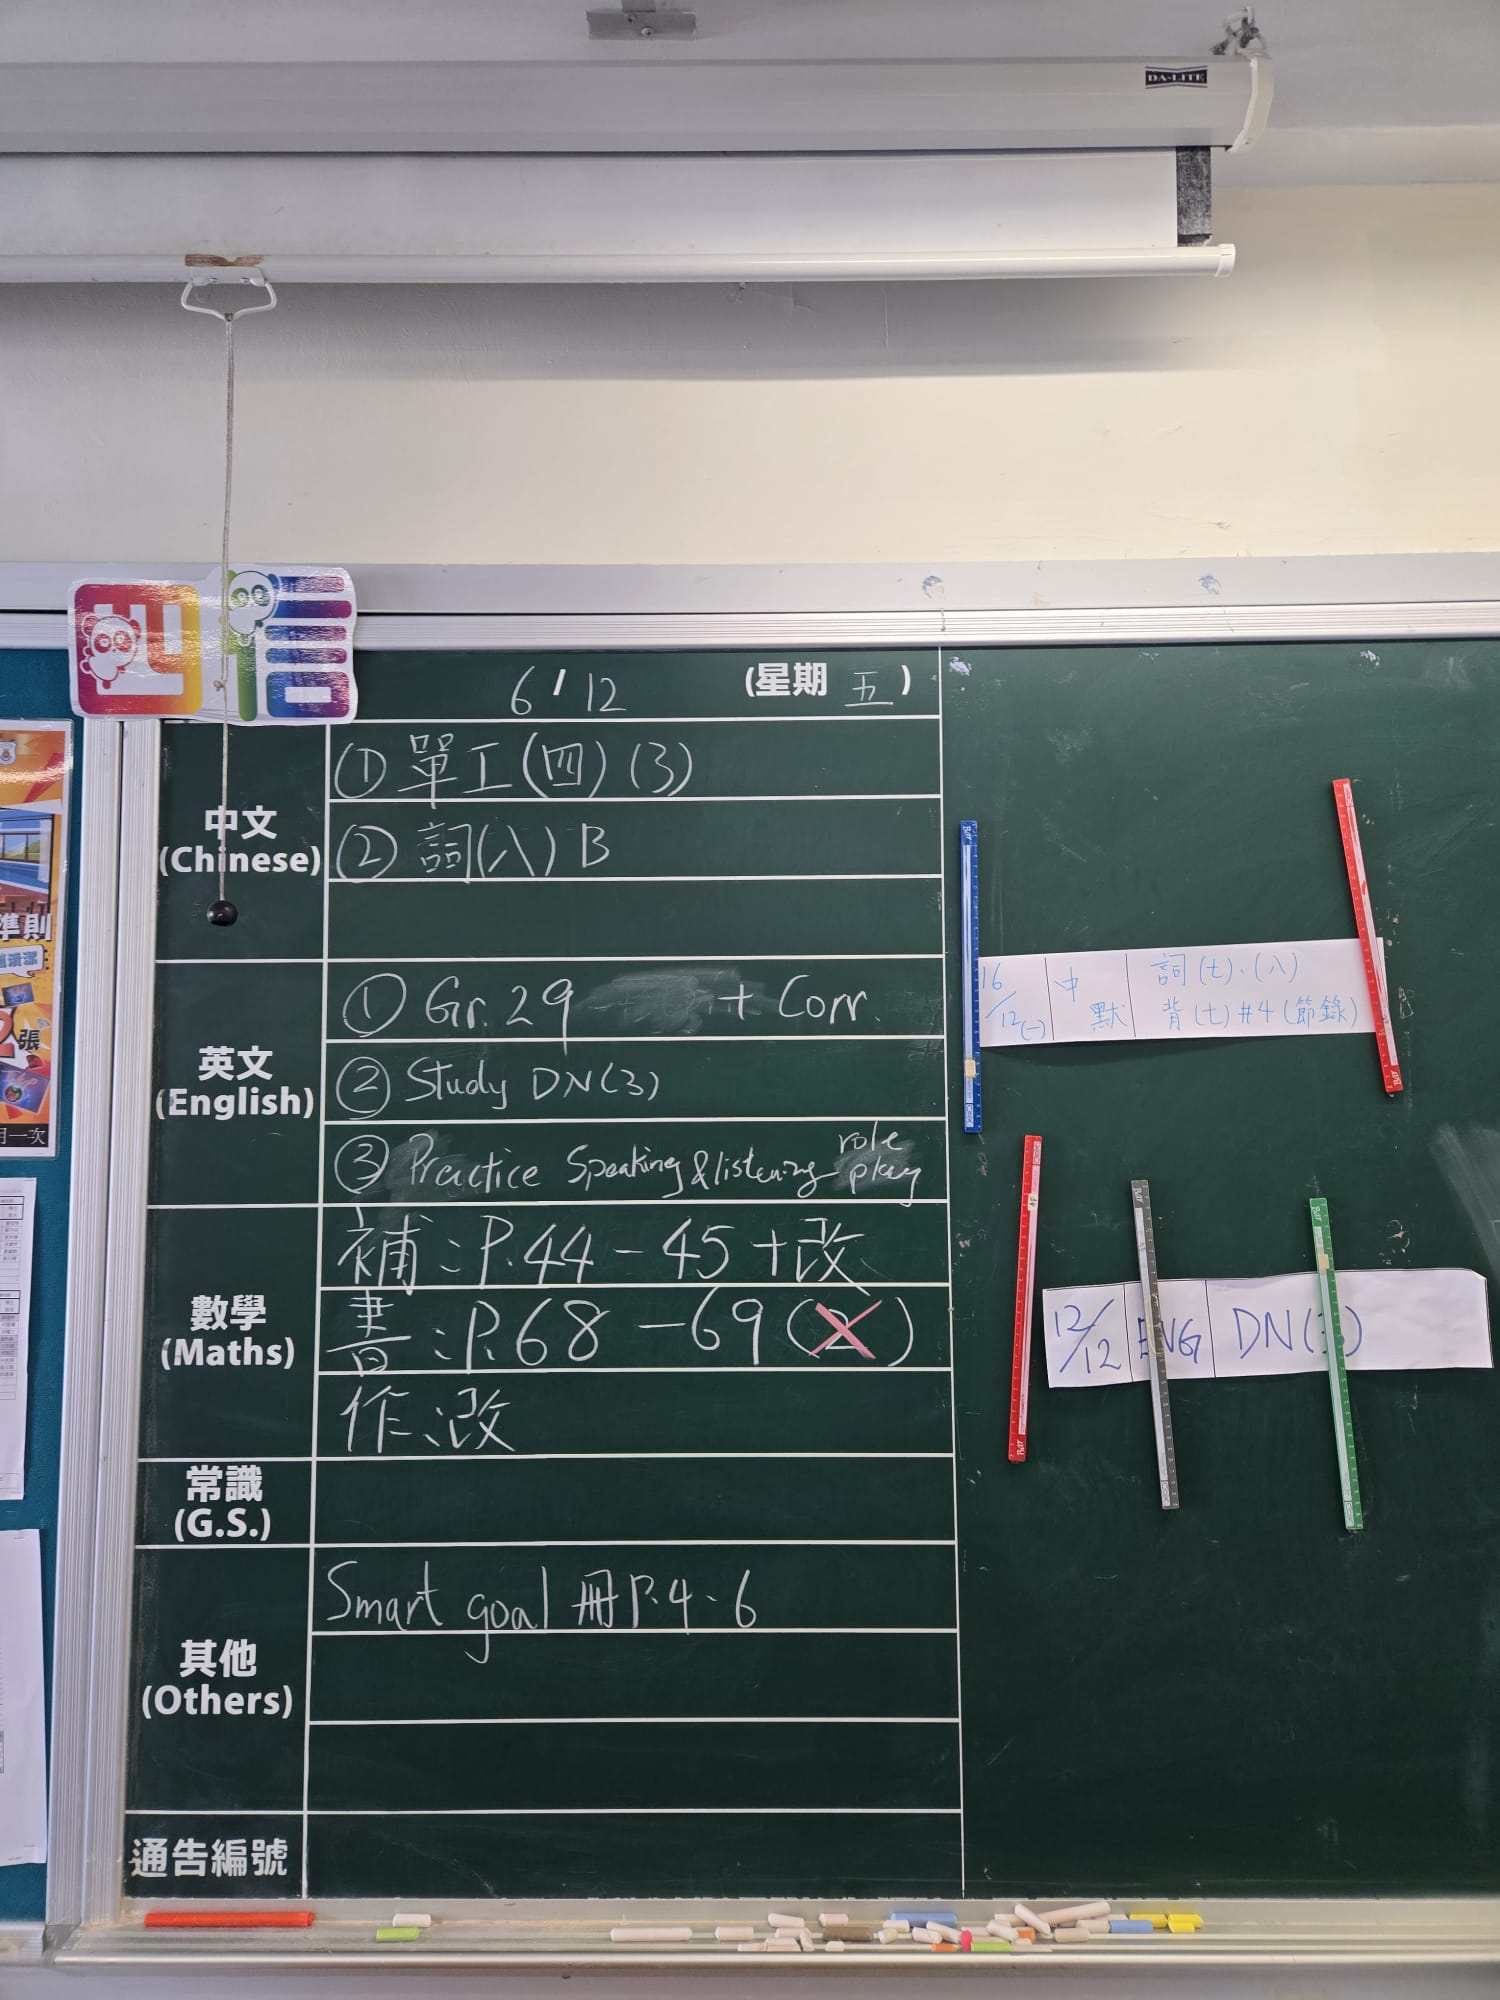 DA-LITE
四信
6/12 (星期 五)
中文
(Chinese)
① 單工(四)(3)
② 詞(八)B
英文
(English)
① Gr.29 + Corr.
② Study DN(3)
③ Practice Speaking & listening role play
數學
(Maths)
補:P.44-45+改
書:P.68-69(2)
作:改
常識
(G.S.)
其他
(Others)
Smart goal 冊P.4、6
通告編號
16/12(一) 中默 詞(七)、(八)
背(七)#4(節錄)
12/12 ENG DN(3)
準則
張
月一次